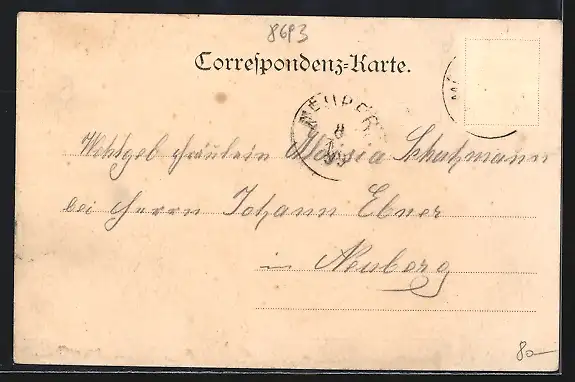 8693
Correspondenz-Karte.
NEUBER
8
99
M
Wohlgeb Fräulein Aloisia Schatzmann
bei Herrn Johann Ebner
in Neuberg
80